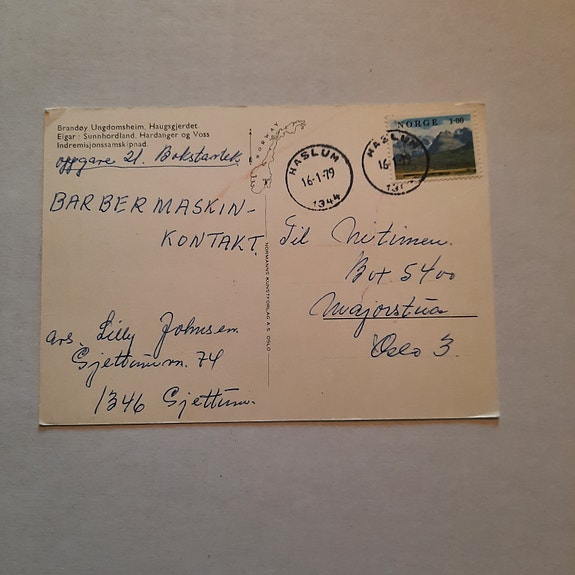 Brandøy Ungdomsheim, Haugsgjerdet
Eigar: Sunnhordland, Hardanger og Voss
Indremisjonssamskipnad.
oppgave 21. Bokstavtek
BARBERMASKIN-
KONTAKT.
avs. Lilly Johnsen
Gjettumv. 74
1346 Gjettum.
NORWAY
NORMANNS KUNSTFORLAG A.S, OSLO
HASLUM
16-1-79
1344
HASLUM
16
NORGE 1.00
Til Nitimen.
Box 5400
Majorstua
Oslo 3.